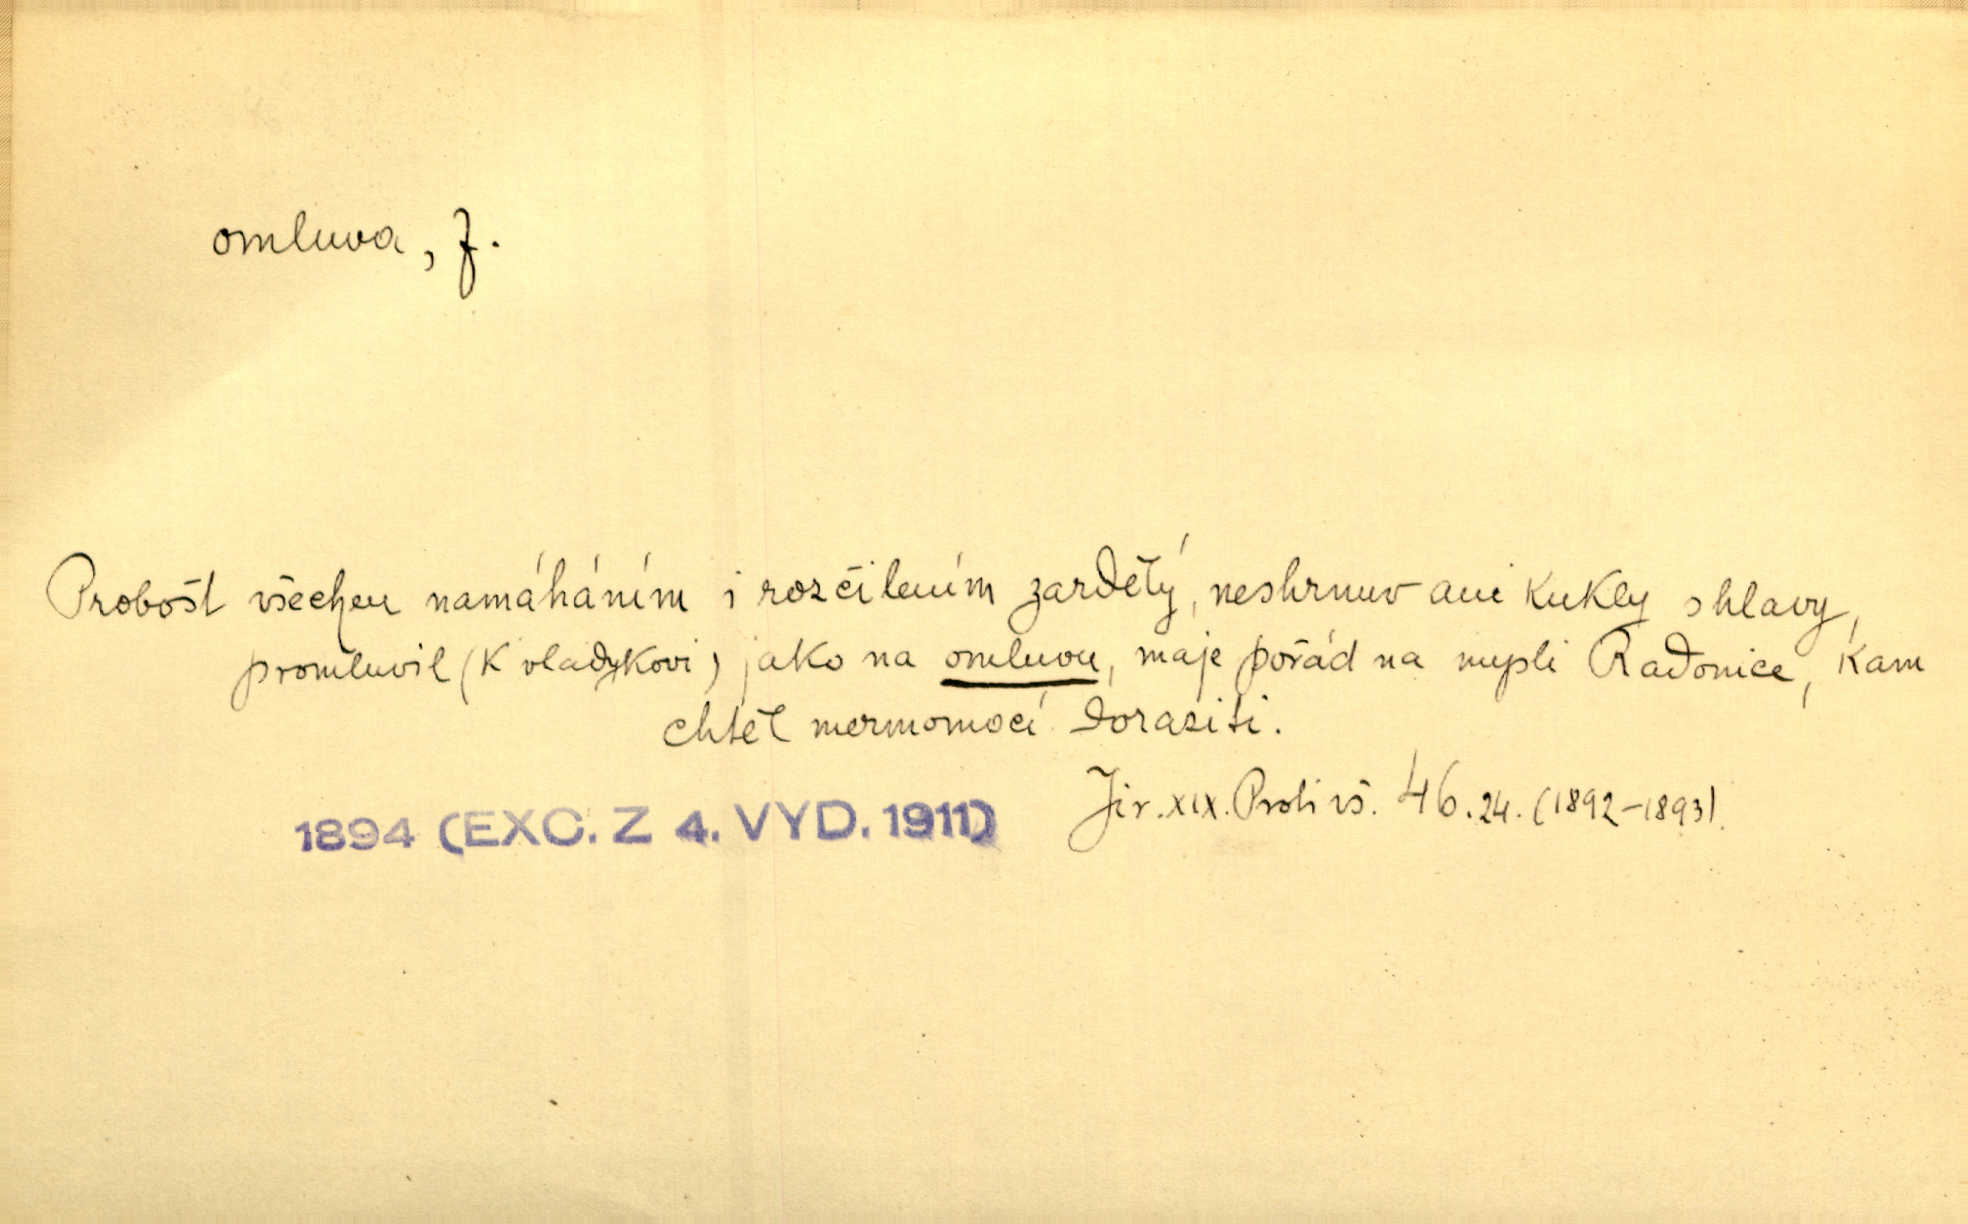 omluva, f.
Probošt všechen namáháním i rozčilením zardělý, neshrnuv ani kukly s hlavy,
promluvil (k vladykovi) jako na omluvu, maje pořád na mysli Radonice, kam
chtěl mermomocí doraziti.
Jir. XIX. Proti vš. 46. 24. (1892–1893).
1894 (EXC. Z 4. VYD. 1911)